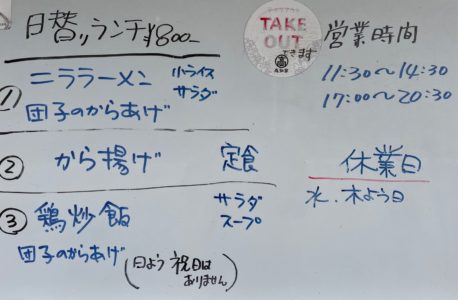 日替りランチ¥800-
① ニララーメン 小ライス サラダ
団子のからあげ
② から揚げ 定食
③ 鶏炒飯 サラダ スープ
団子のからあげ
(日よう 祝日は ありません)
テイクアウト
TAKE OUT
できます
営業時間
11:30〜14:30
17:00〜20:30
休業日
水.木よう日